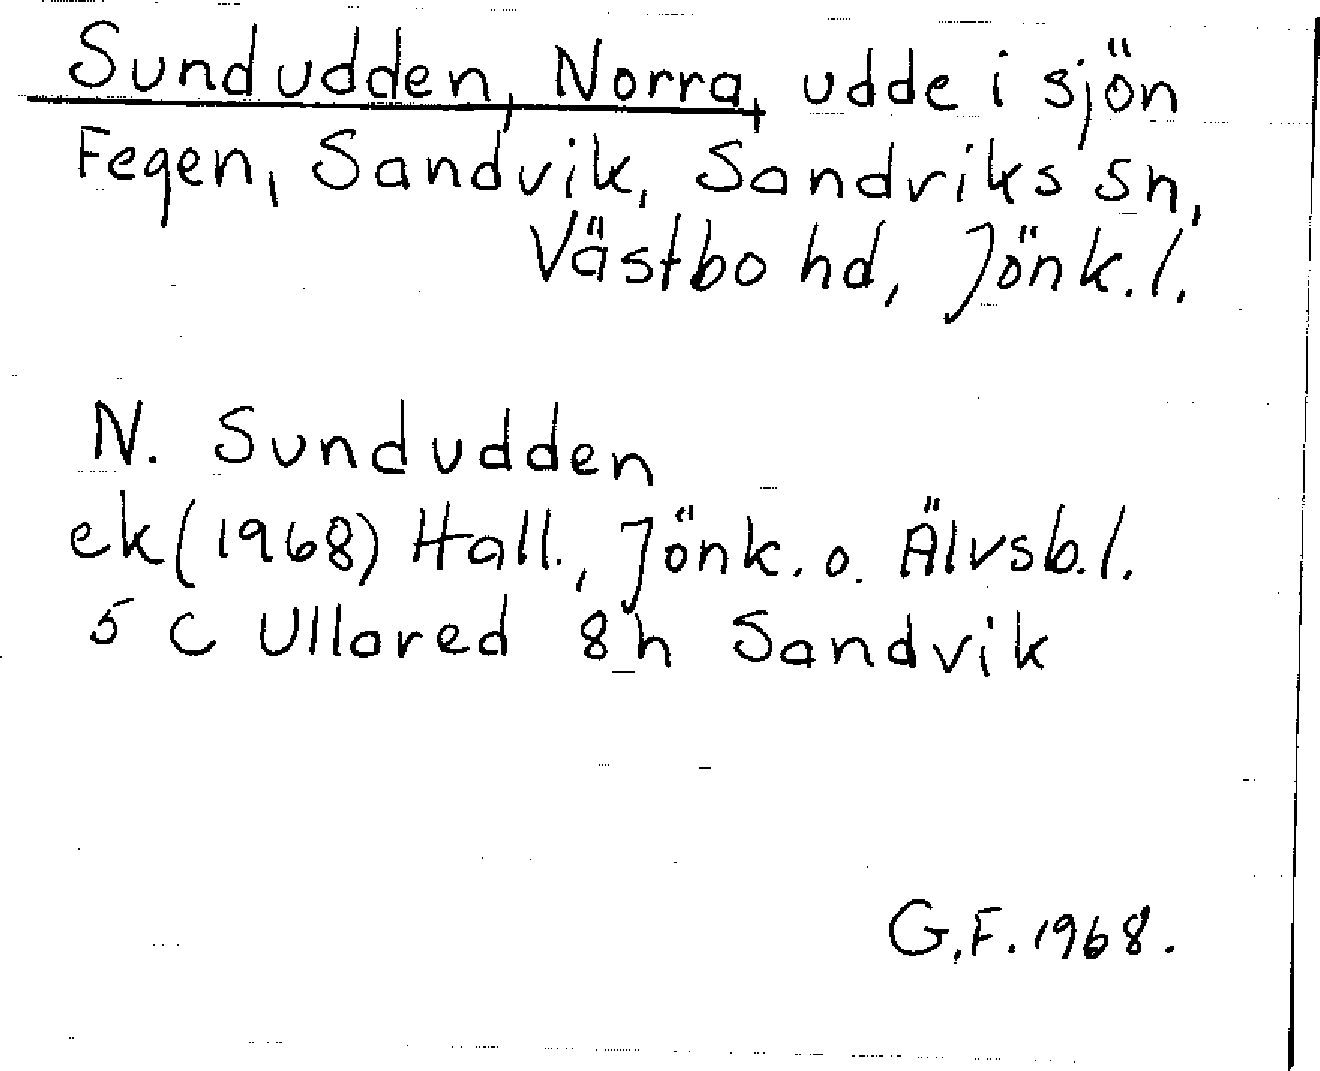 Sundudden, Norra, udde i sjön
Fegen, Sandvik, Sandviks sn,
Västbo hd, Jönk.l.
N. Sundudden
ek (1968) Hall., Jönk. o. Älvsb.l.
5 C Ullared 8 h Sandvik
G.F. 1968.